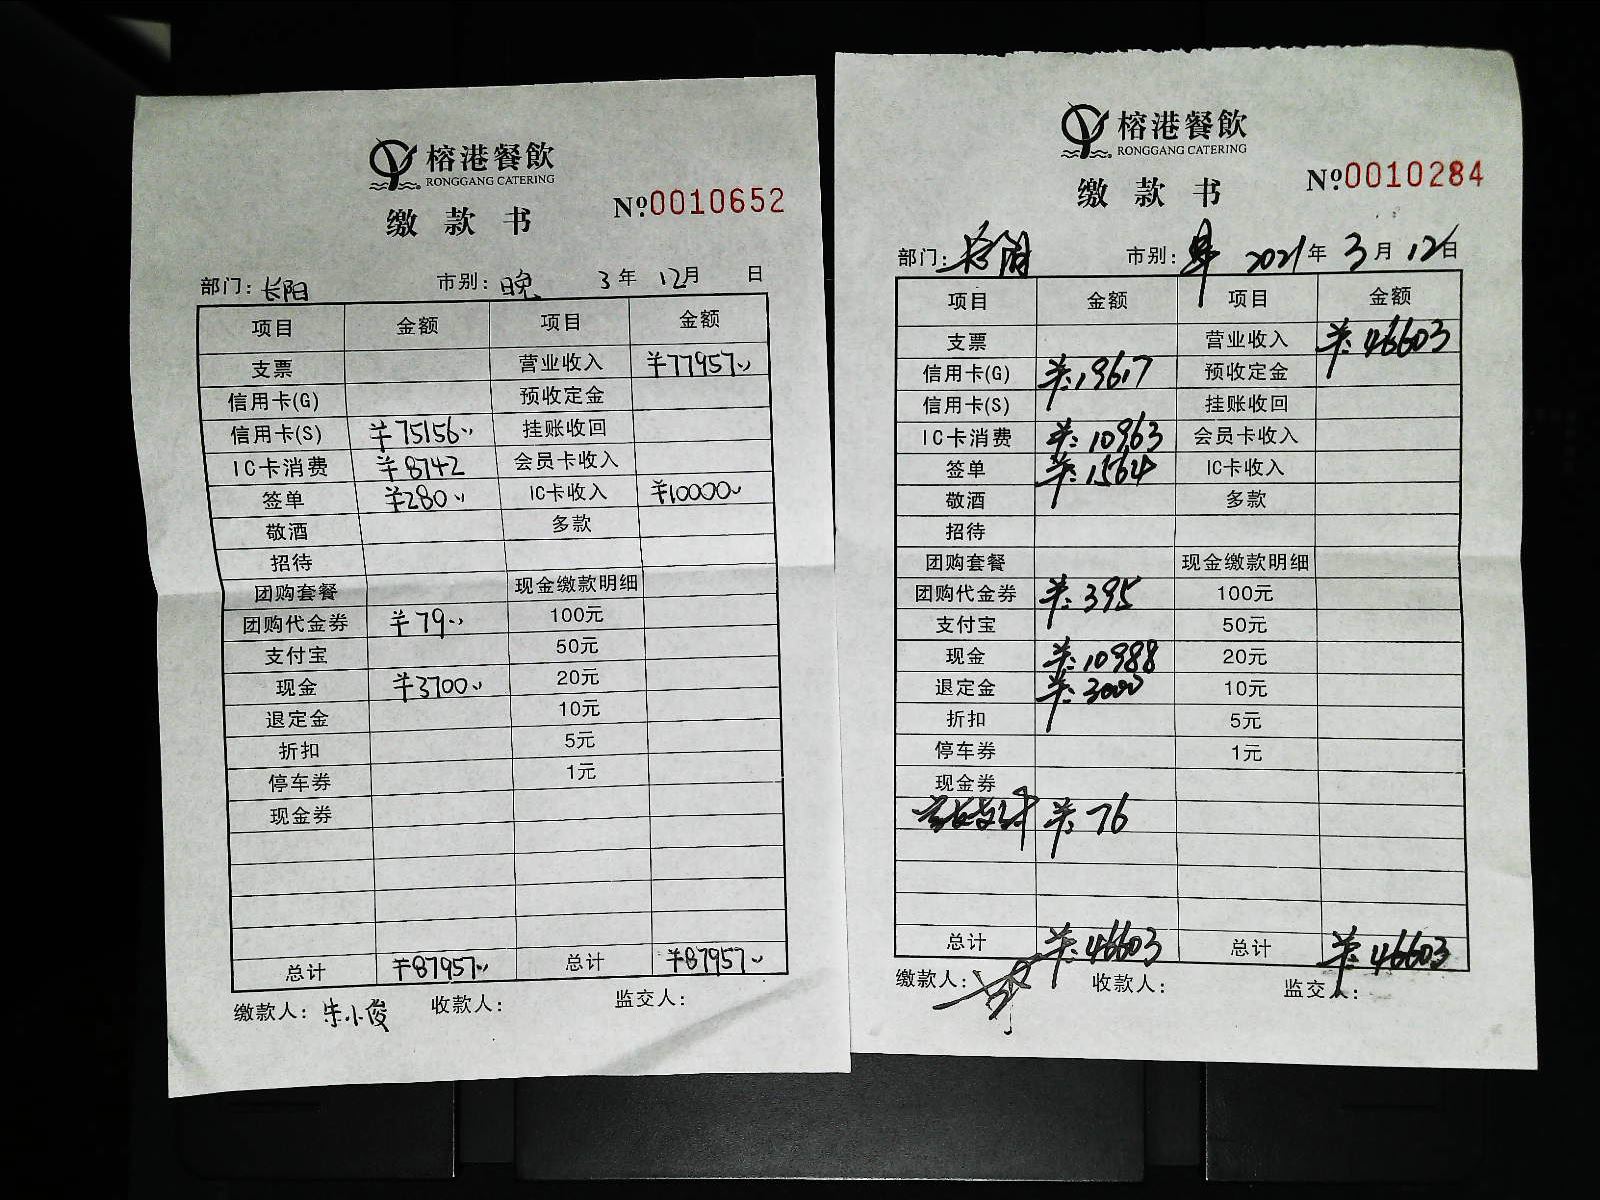 榕港餐飲
RONGGANG CATERING
缴款书
№0010652
部门: 长阳 市别: 晚 3年 12月 日
项目 金额 项目 金额
支票 营业收入 ¥77957..
信用卡(G) 预收定金
信用卡(S) ¥75156.. 挂账收回
IC卡消费 ¥8742 会员卡收入
签单 ¥280.. IC卡收入 ¥10000..
敬酒 多款
招待
团购套餐 现金缴款明细
团购代金券 ¥79.. 100元
支付宝 50元
现金 ¥3700.. 20元
退定金 10元
折扣 5元
停车券 1元
现金券
总计 ¥87957.. 总计 ¥87957..
缴款人: 朱小俊 收款人: 监交人:
榕港餐飲
RONGGANG CATERING
缴款书
№0010284
部门: 长阳 市别: 早 2021年 3月 12日
项目 金额 项目 金额
支票 营业收入 ¥:46603
信用卡(G) ¥:19617 预收定金
信用卡(S) 挂账收回
IC卡消费 ¥:10963 会员卡收入
签单 ¥:1564 IC卡收入
敬酒 多款
招待
团购套餐 现金缴款明细
团购代金券 ¥:395 100元
支付宝 50元
现金 ¥:10988 20元
退定金 ¥:3000 10元
折扣 5元
停车券 1元
现金券
¥:76
总计 ¥:46603 总计 ¥:46603
缴款人: 收款人: 监交人: